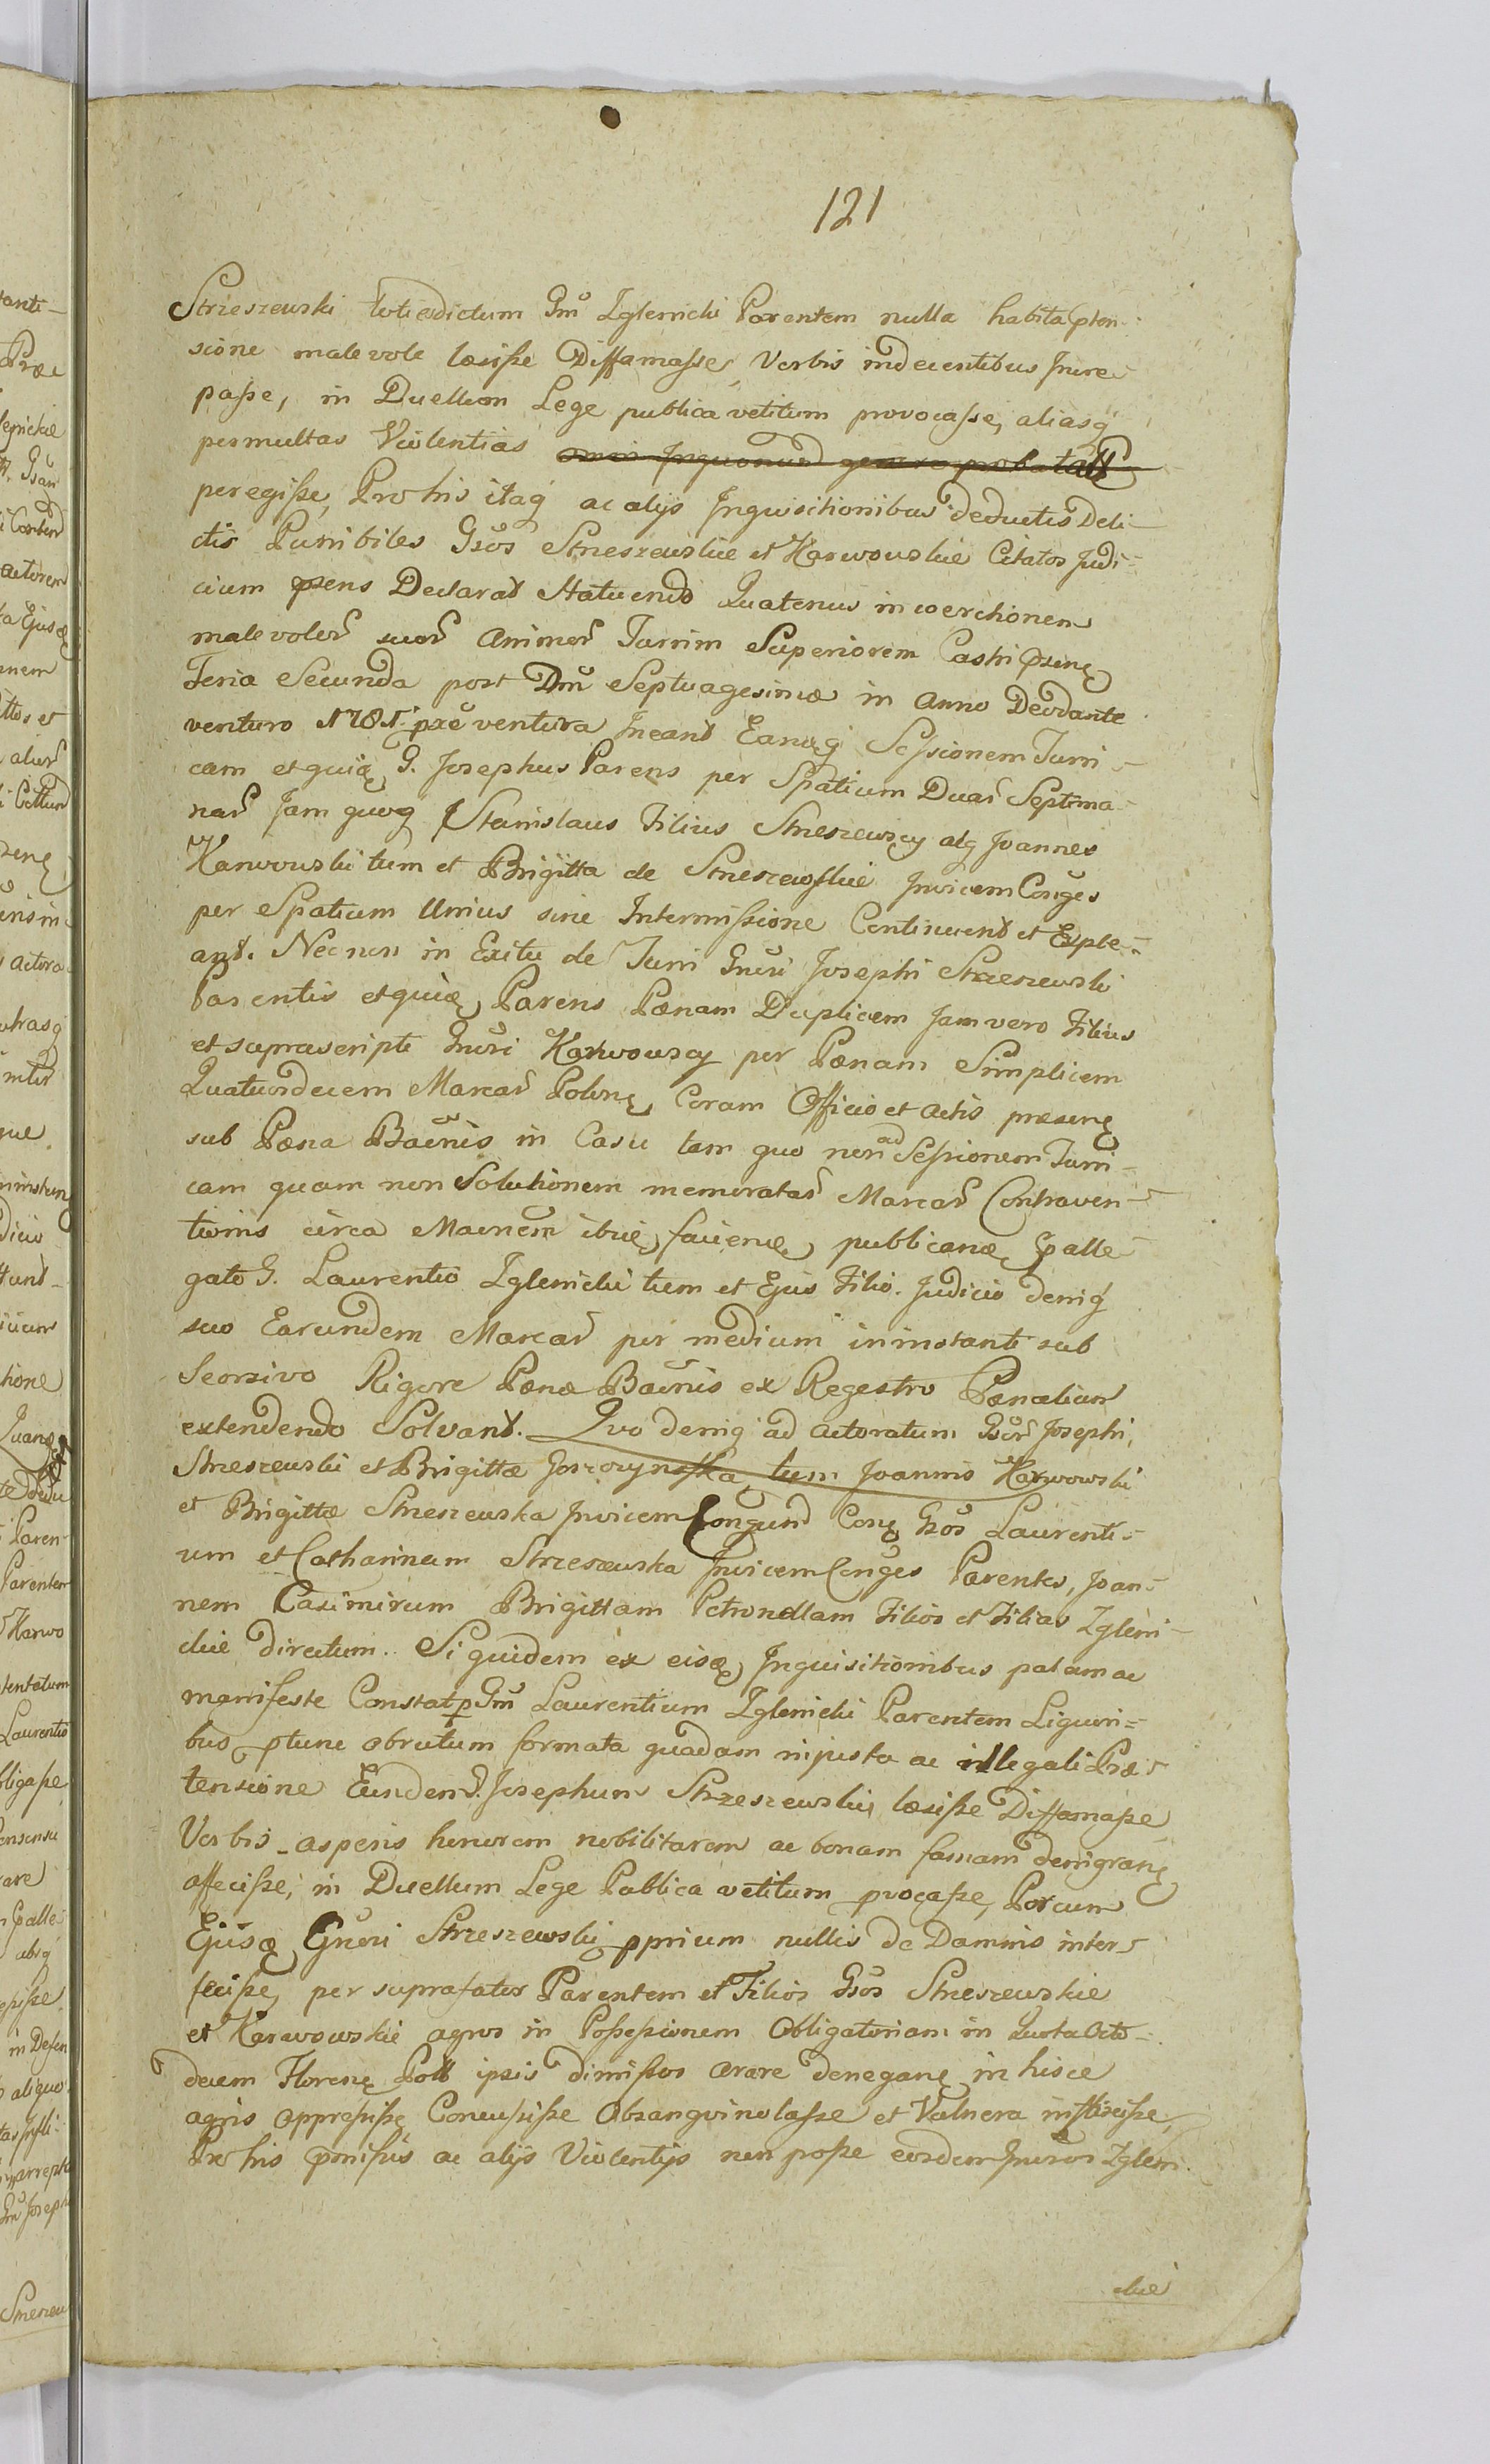 121
Strzeszewski totiesdictum Gnm̃ Zglenicki Parentem nulla habita pten-
sione malevole læsiße Diffamaßse, Verbis indecentibus Jncre-
paße, in Duellum Lege publica vetitum provocaſse, aliasq́
permultas Violentias
peregiße, Pro his itaq́ ac alijs Jnquisitionibus deductis Deli-
ctis Punibiles Gsõs Strzeszewskie et Karwowskie Citatos Judi-
cium p̃sens Declarat Statuendo Quatenus in coerctionem
malevolor suor Animor Turrim Superiorem Castri p̃sens
Feria Secunda post Dm̃ Septuagesimæ in Anno Deodante
venturo 1781. pxẽ ventura Jneant Eamq́ Seſsionem Turri-
cam et quid G. Josephus Parens per Spatium Duar Septima-
nar Jam quoq Stanislaus Filius Strzeszewscy atq Joannes
Karwowski tum et Brigitta de Strzeszewskie Jnvicem Conges
per Spatium Unius sine Intermißione Continuent et Exple-
ant. Nec non in Exitu de Turri Gnũri Josephi Strzeszewski
Parentis et quid Parens Pænam Duplicem Jam vero Filius
et suprascripti Gnũri Karwowscy per Pænam Simplicem
Quatuordecem Marcar Polon Coram Officio et Actis præsen
sub Pæna Bañis in Casu tam quo non ad Seßionem Turri-
cam quam non Solutionem memoratar Marcar Contraven-
tionis circa publican p̃alle-
gato G. Laurentio Zglenicki tum et Ejus Filio. Judicio deniq́
suo Earundem Marcar per medium in instanti sub
Seorsivo Rigore Pænæ Bañis ex Regestro Pænalium
extendendo Solvant. Quo deniq́ ad Actoratum Gsor Josephi,
Strzeszewski et Brigittæ tum Joannis Karwowski
et Brigittæ Strzeszewska Jnvicem Congum Con Gsõs Laurenti-
um et Catharinam Strzeszewska Jnvicem Conges Parentes, Joan-
nem Casimirum Brigittam Petronellam Filios et Filias Zgleni-
ckie directum. Siquidem ex eisd Jnquisitionibus palam ac
manifeste Constat p Gnm̃ Laurentium Zglenicki Parentem Liquori-
bus ptunc obrutum formata quadam injusta ac illegali Præ-
tensione Eundem G. Josephum Strzeszewski læsiße Diffamaße
Verbis asperis honorem nobilitarem ac bonam famam denigran
affeciße, in Duellum Lege Publica vetitum pvocaße, Porcum
Ejusd Gnũri Strzeszewski pprium nullis de Damnis inter-
feciße, per suprafatos Parentem et Filios Gsõs Strzeszewskie
et Karwowskie agros in Poßeßionem Obligatoriam in Quota Octo-
decem Floren Poll ipsis dimißos arare denegan in hisce
agris oppreßiße Concußiße Obsanguinolaſse et Vulnera inflixiße,
Pro his p̃mißis ac alijs Violentijs non poße eosdem Gnũros Zgleni-
ckie